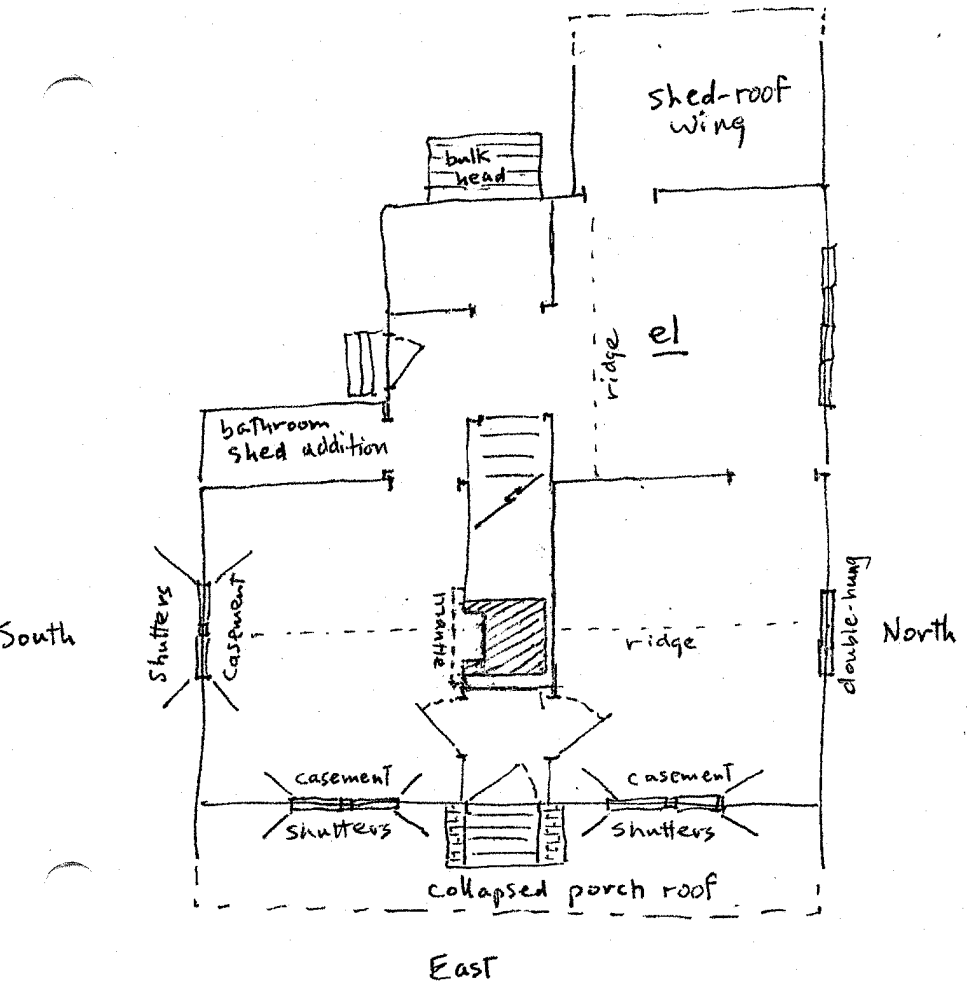 shed-roof
wing
bulk
head
el
ridge
bathroom
shed addition
South
Shutters
Casement
mantle
ridge
double-hung
North
casement
shutters
casement
shutters
collapsed porch roof
East